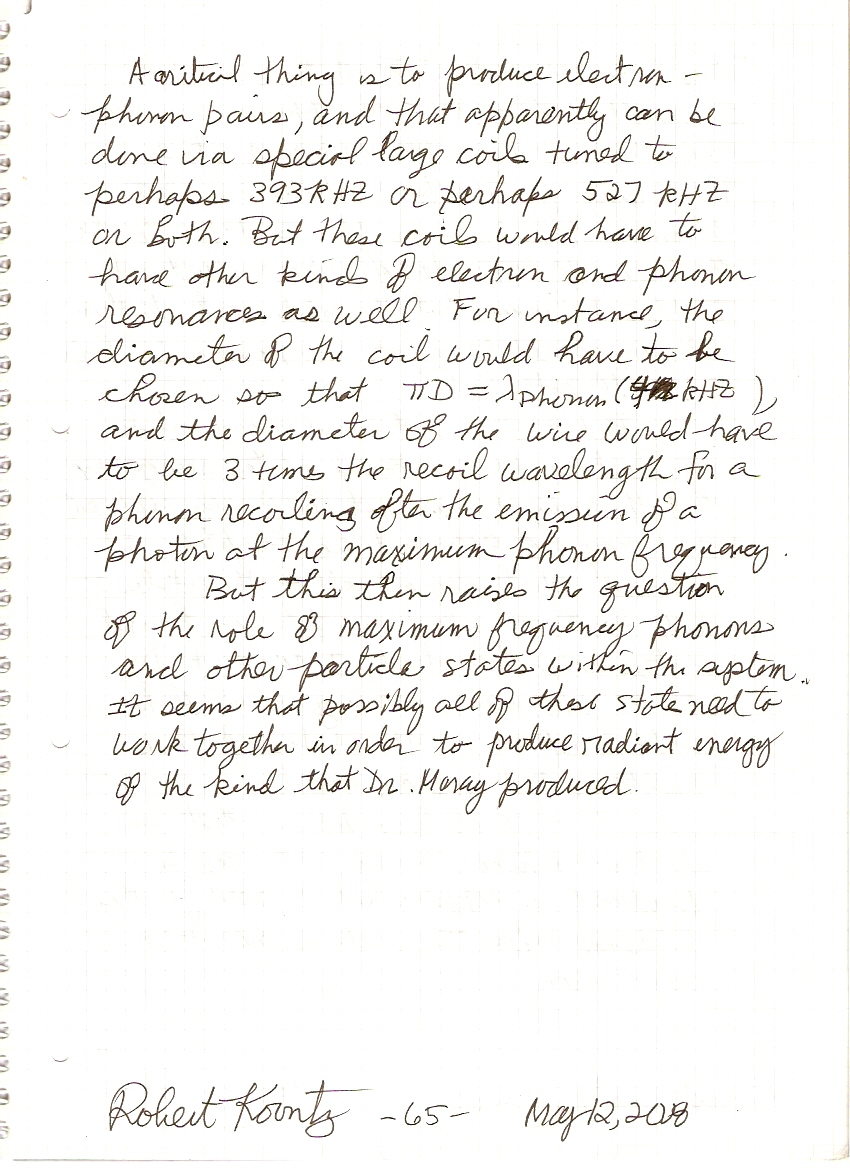 A critical thing is to produce electron-
phonon pairs, and that apparently can be
done via special large coils tuned to
perhaps 393 kHz or perhaps 527 kHz
or both. But these coils would have to
have other kinds of electron and phonon
resonances as well. For instance, the
diameter of the coil would have to be
chosen so that πD = λphonon ( kHz ),
and the diameter of the wire would have
to be 3 times the recoil wavelength for a
phonon recoiling after the emission of a
photon at the maximum phonon frequency.
But this then raises the question
of the role of maximum frequency phonons
and other particle states within the system.
It seems that possibly all of these state need to
work together in order to produce radiant energy
of the kind that Dr. Moray produced.
Robert Koontz -65- May 12, 2008